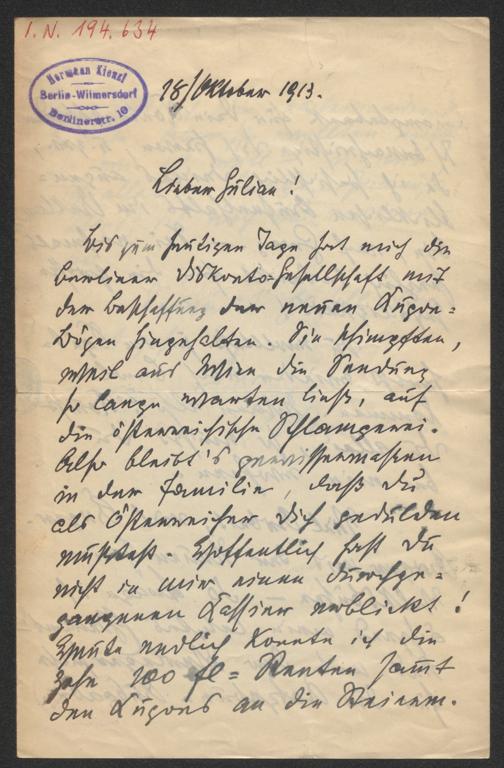 I.N. 194.634
Hermann Kienzl
Berlin-Wilmersdorf
Berlinerstr. 10
18/Oktober 1913.
Lieber Julian!
Bis zum heutigen Tage hat mich die
Berliner Diskonto=Gesellschaft mit
der Beschaffung der neuen Kupon=
bögen hingehalten. Sie schimpften,
weil aus Wien die Sendung
so lange warten ließ, auf
die österreichische Schlamperei.
Also bleibt's gewissermaßen
in der Familie, daß Du
als Österreicher Dich gedulden
mußtest. Hoffentlich hast Du
nicht in mir einen durchge=
gangenen Kassier erblickt!
Heute endlich konnte ich die
zehn 100 fl= Renten samt
den Kupons an die Steierm.